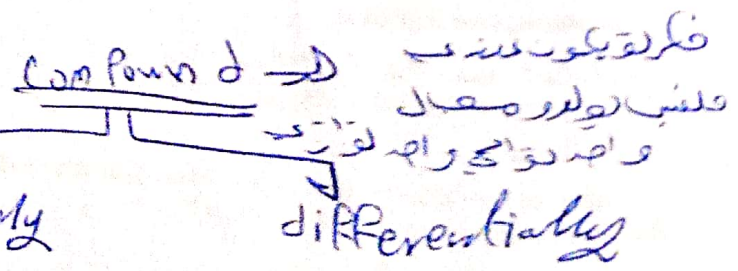 compound → الـ فكرته يكون عندي
ملفين يولدو مجال
واحد توالي واحد توازي
ly differentially